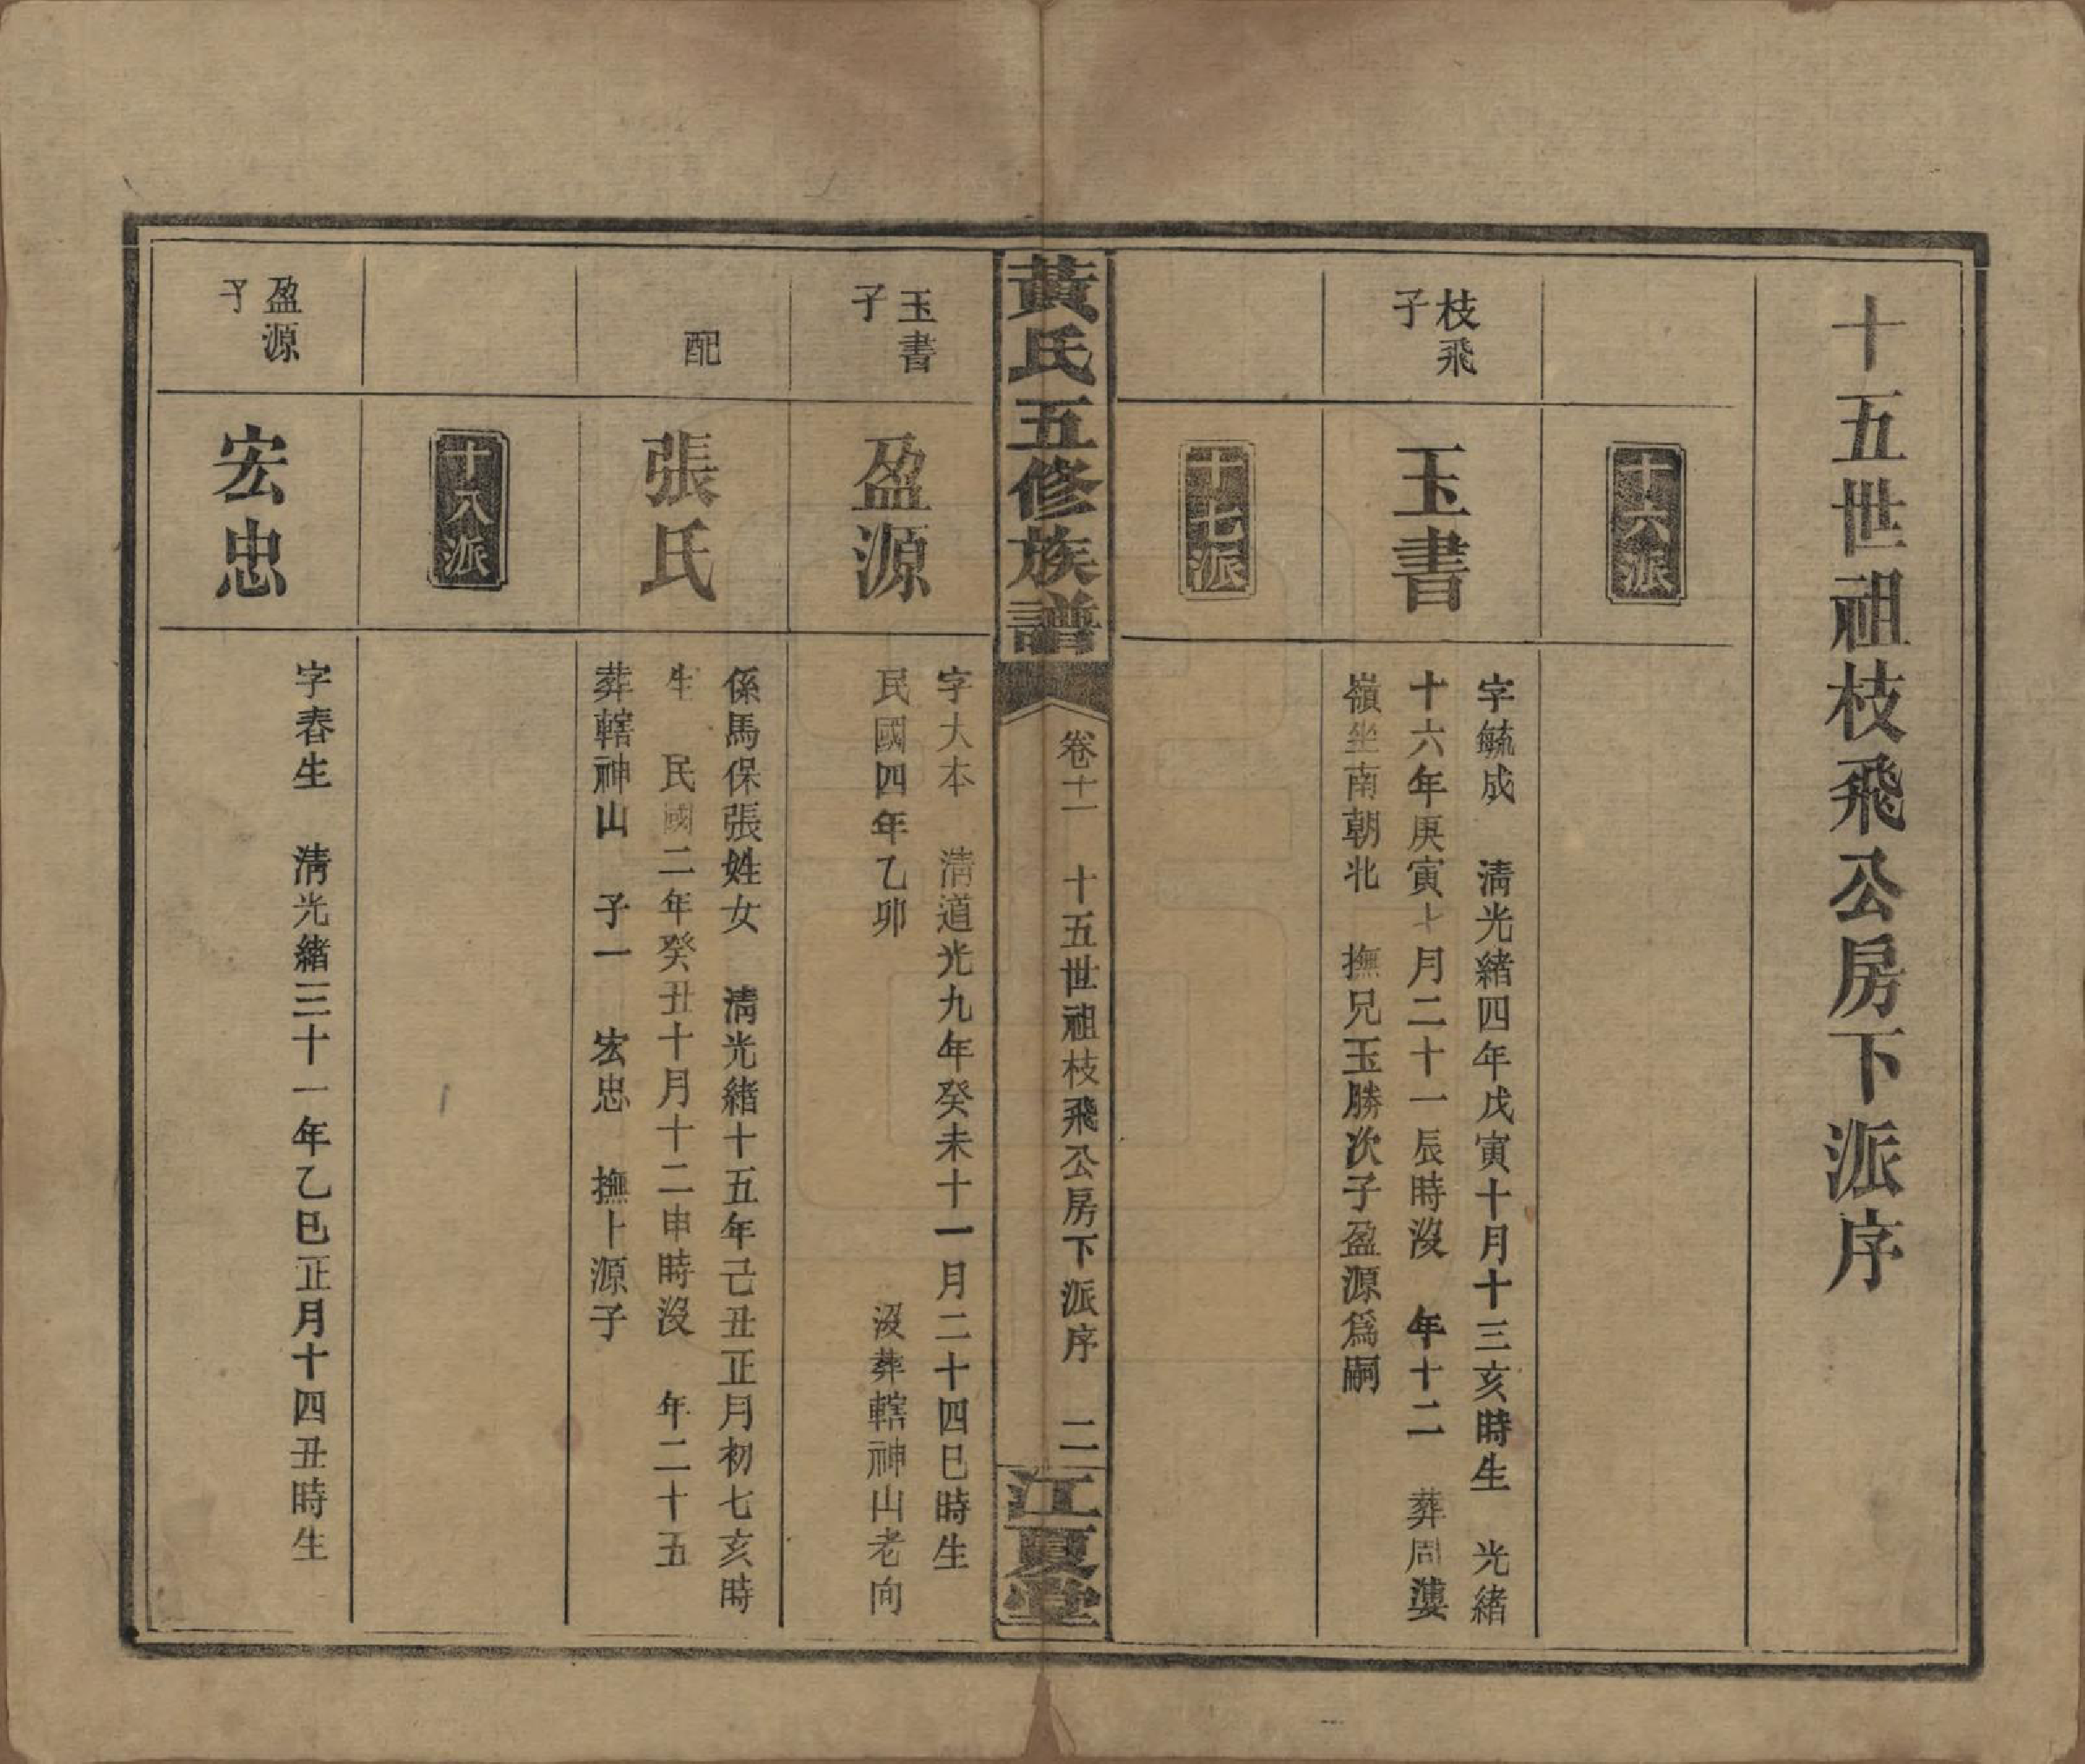 十五世祖枝飛公房下派序
十六派
枝飛
子
玉書
字毓成　清光緒四年戊寅十月十三亥時生　光緒
十六年庚寅七月二十一辰時沒　年十二　葬周婁
嶺坐南朝北　撫兄玉勝次子盈源爲嗣
十七派
黃氏五修族譜
卷十一　十五世祖枝飛公房下派序　二
江夏堂
玉書
子
盈源
字大本　清道光九年癸未十一月二十四巳時生
民國四年乙卯　沒葬轄神山老向
配
張氏
係馬保張姓女　清光緒十五年己丑正月初七亥時
生　民國二年癸丑十月十二申時沒　年二十五
葬轄神山　子一　宏忠　撫卜源子
十八派
盈源
子
宏忠
字春生　清光緒三十一年乙巳正月十四丑時生